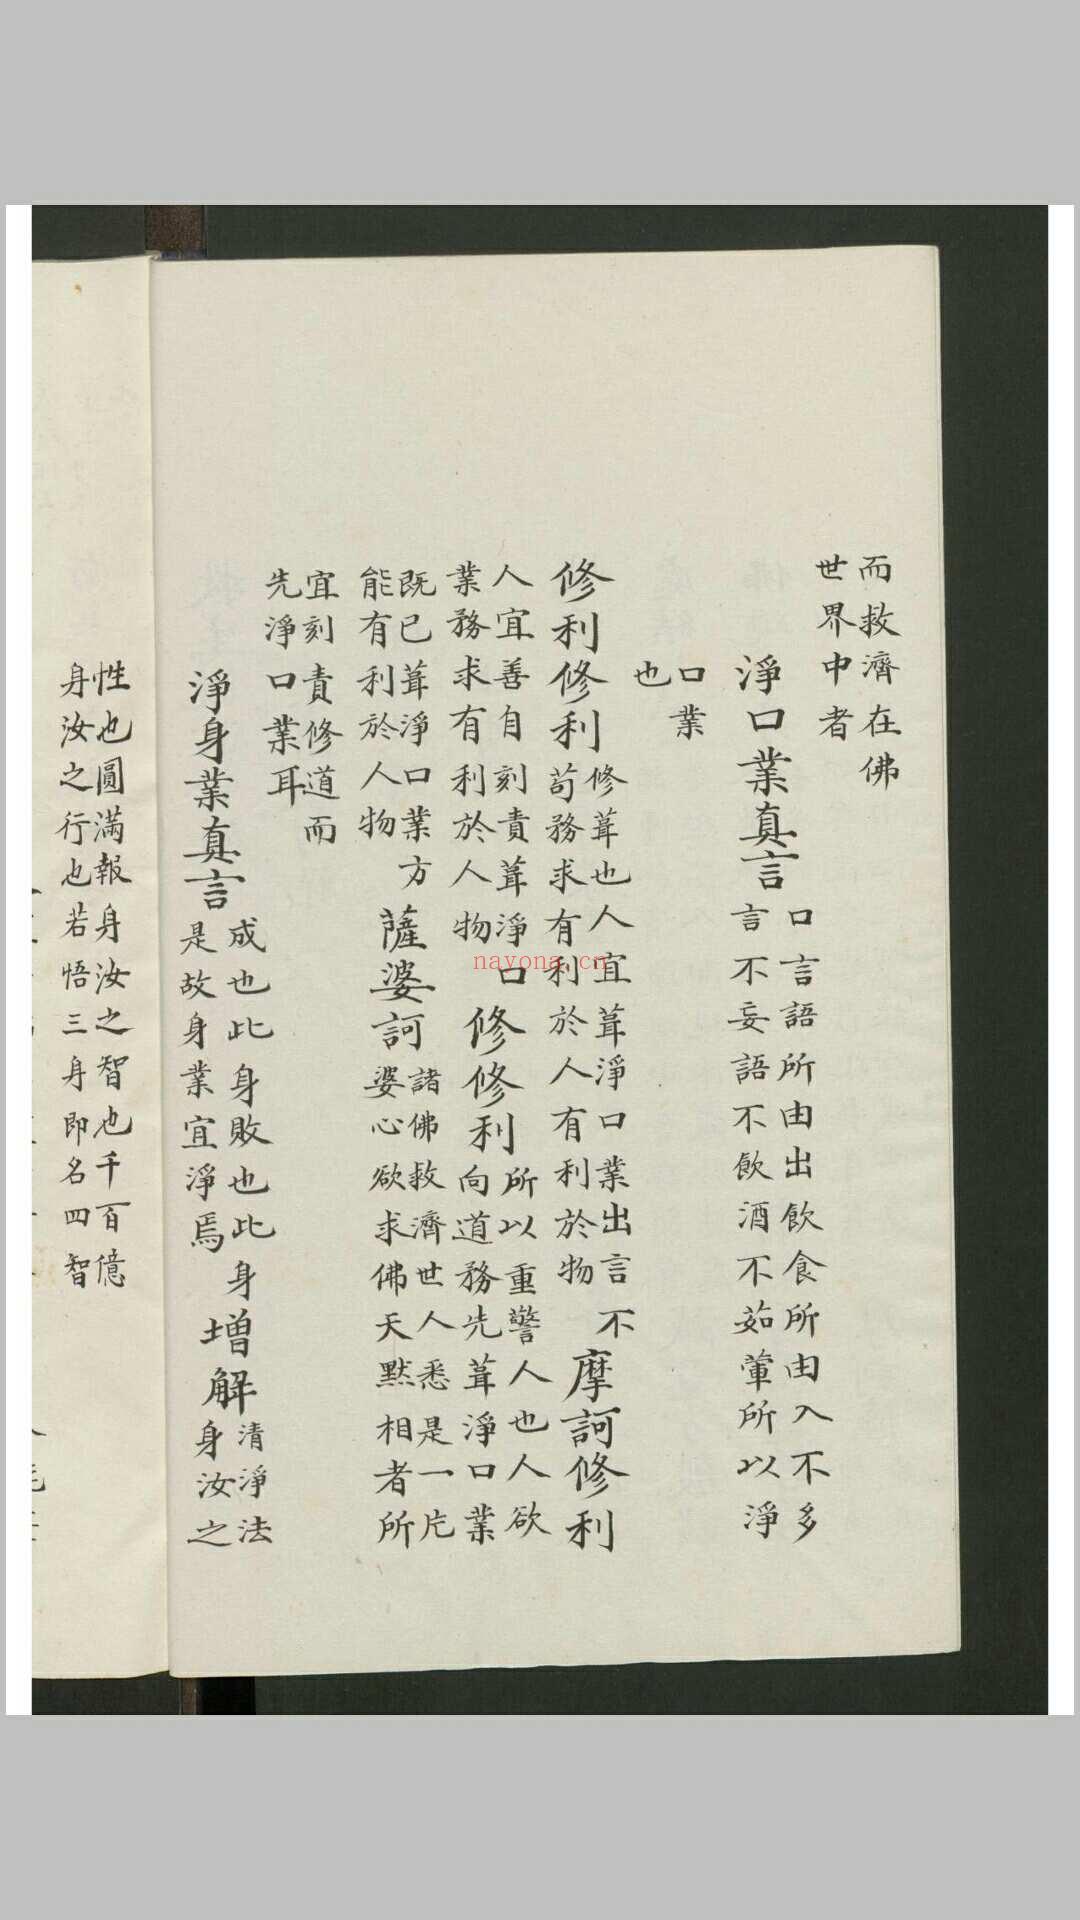 而救濟在佛
世界中者
淨口業真言
口言語所由出飲食所由入不多
言不妄語不飲酒不茹葷所以淨
口業
也
修利修利
修葺也人宜葺淨口業出言不
苟務求有利於人有利於物
摩訶修利
人宜善自刻責葺淨口
業務求有利於人物
修修利
所以重警人也人欲
向道務先葺淨口業
既已葺淨口業方
能有利於人物
薩婆訶
諸佛救濟世人悉是一片
婆心欲求佛天默相者所
宜刻責修道而
先淨口業耳
淨身業真言
成也此身敗也此身
是故身業宜淨焉
增解
清淨法
身汝之
性也圓滿報身汝之智也千百億
身汝之行也若悟三身即名四智
nayona.cn